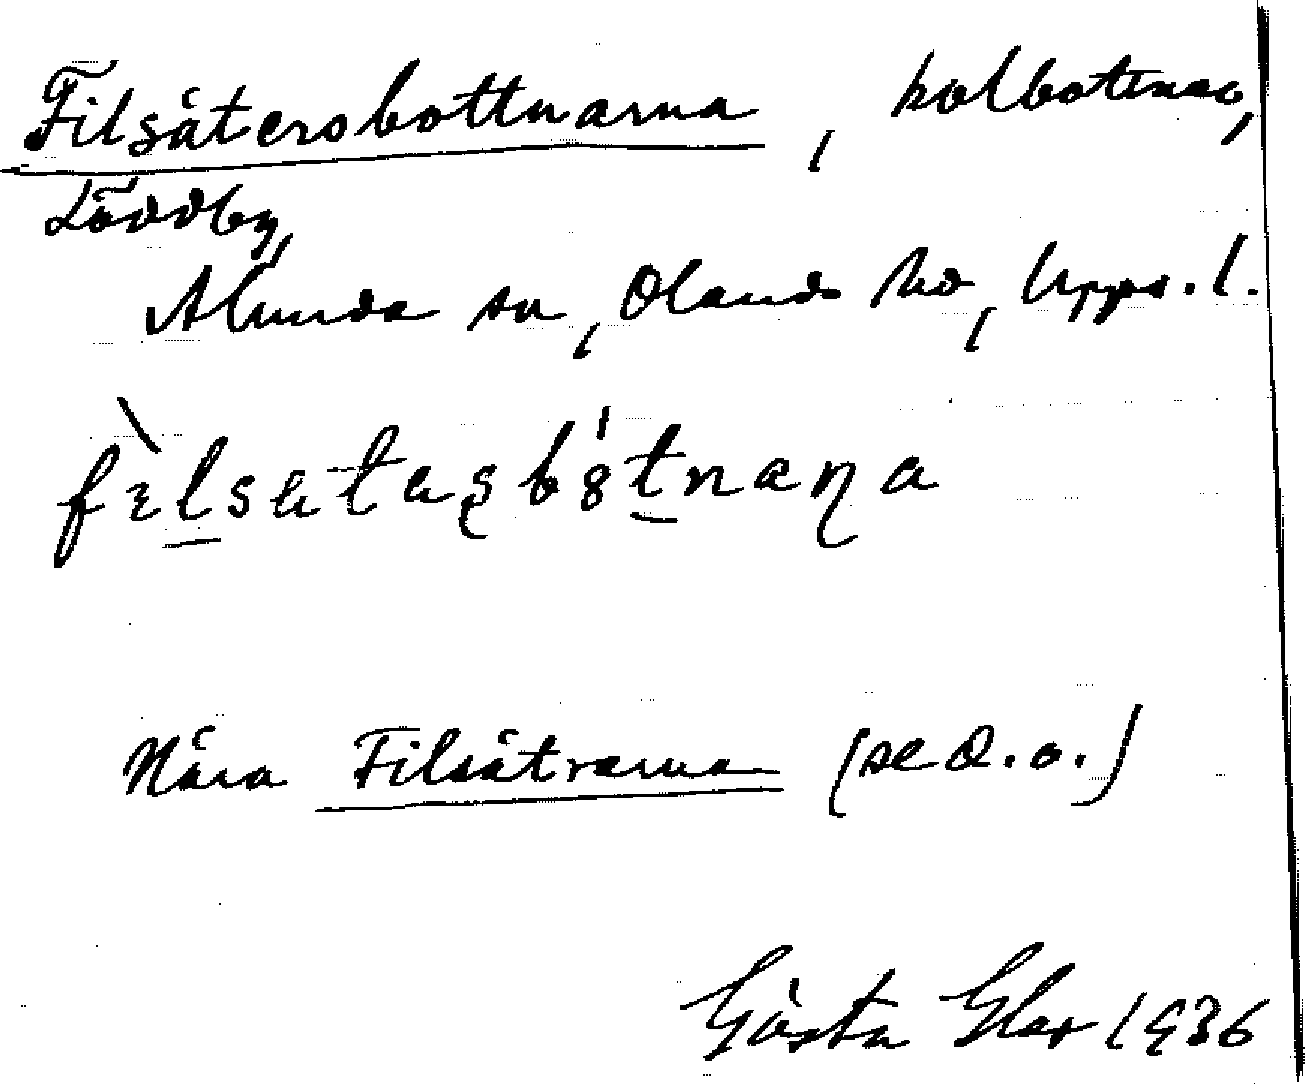 Filsätersbottnarna, kolbottnar,
Löddby,
Alunda sn, Olands hd, Upps. l.
Nära Filsätrarna (se d. o.)
Gösta 1936